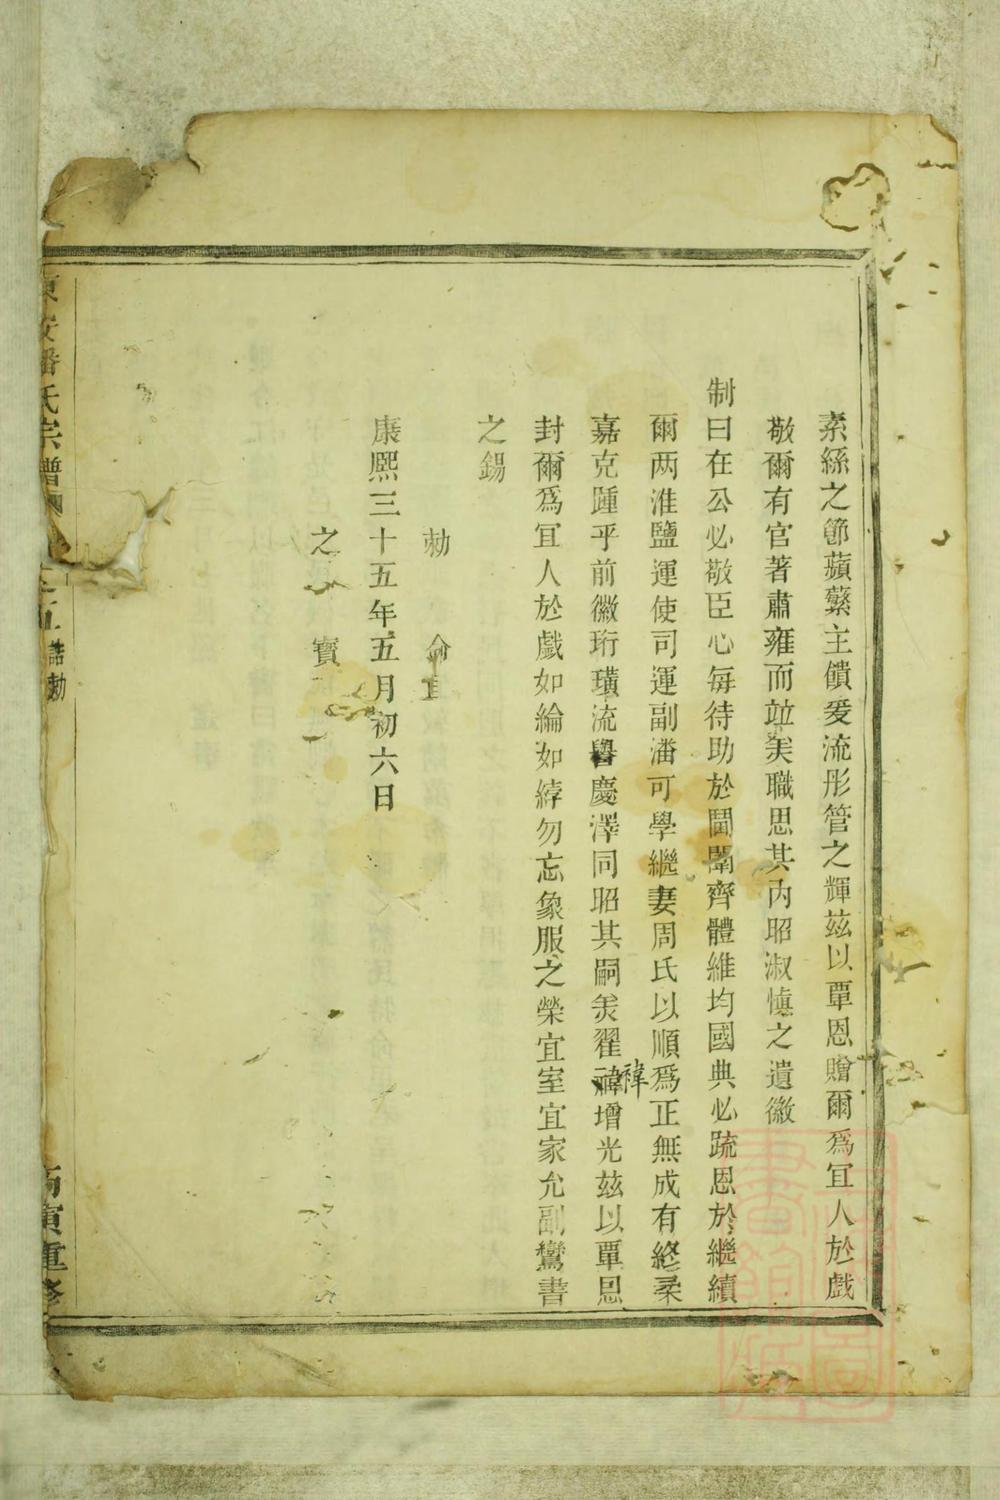 素絲之節蘋蘩主饋爰流彤管之輝茲以覃恩贈爾爲宜人於戲
敬爾有官著肅雍而竝美職思其內昭淑愼之遺徽
制曰在公必敬臣心每待助於閫闈齊體維均國典必疏恩於繼續
爾两淮鹽運使司運副潘可學繼妻周氏以順爲正無成有終柔
嘉克踵乎前徽珩璜流譽慶澤同昭其嗣美翟禕增光茲以覃恩
禕
封爾爲宜人於戲如綸如綍勿忘象服之榮宜室宜家允副鸞書
之錫
勅命
康熙三十五年五月初六日
之寶
東安潘氏宗譜 卷五 誥勅 丙寅重修